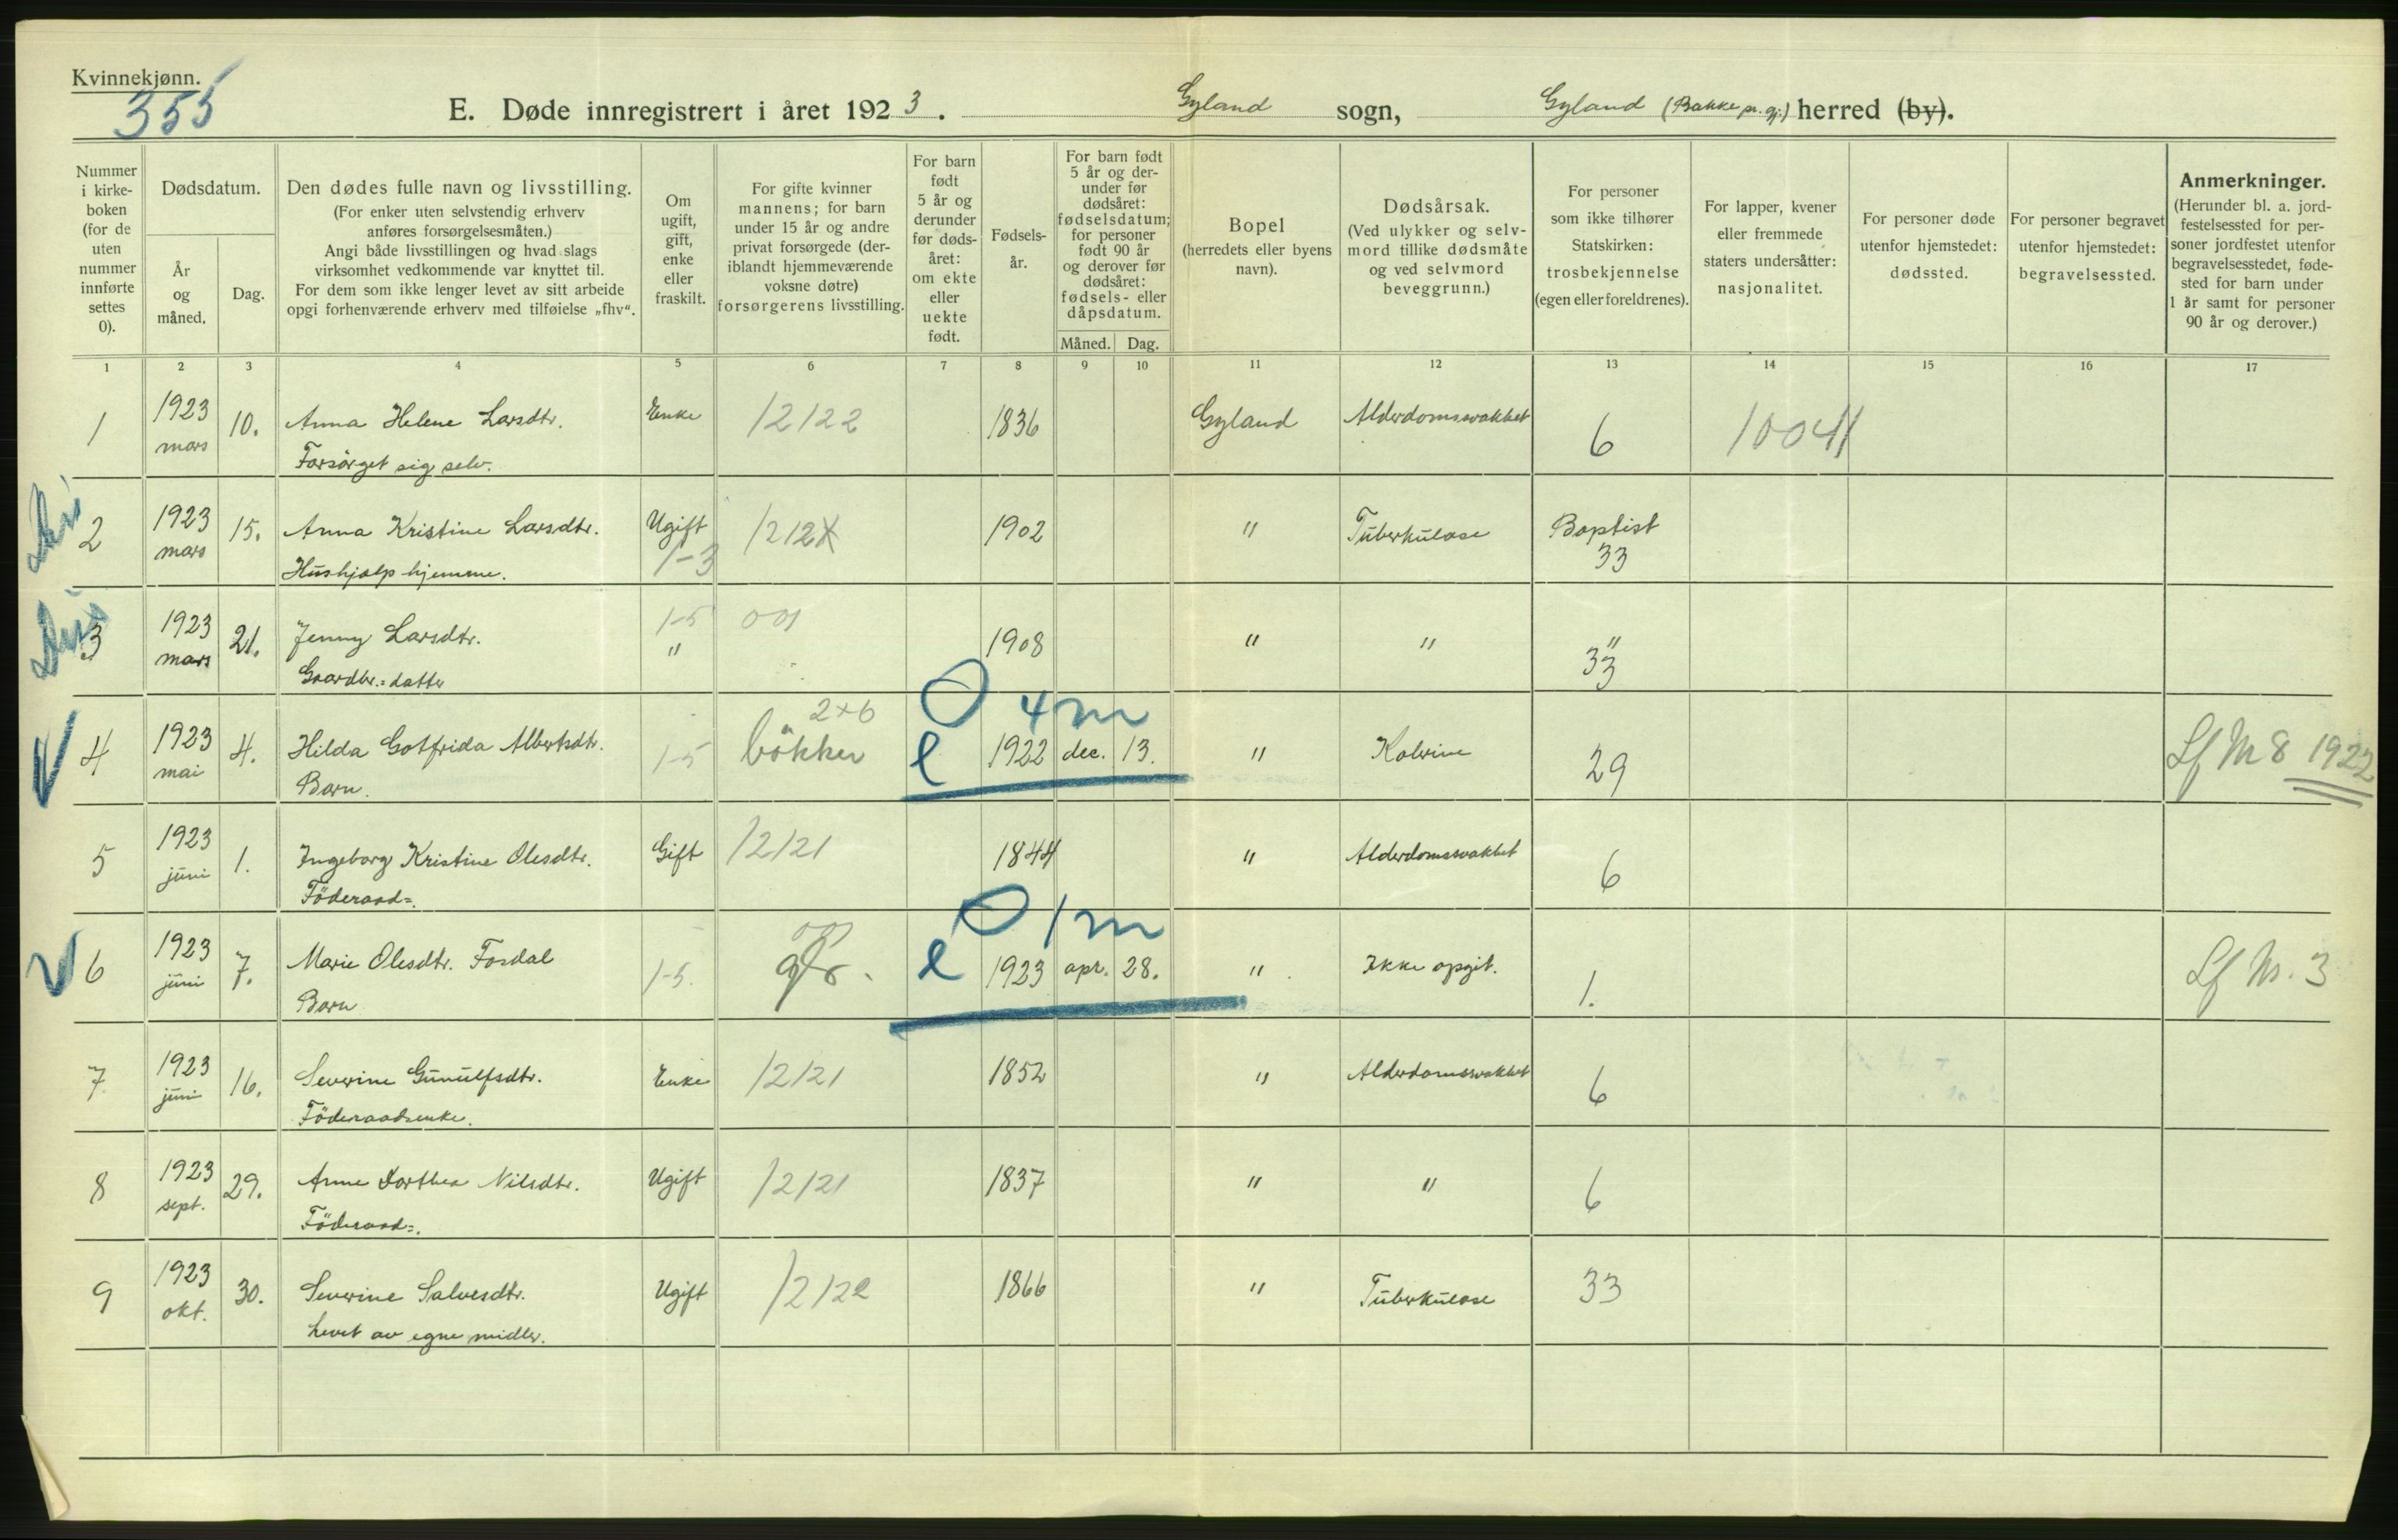 Kvinnekjønn.
355
E. Døde innregistrert i året 1923. Gyland sogn, Gyland (Bakke pr. gj.) herred (by).
Nummer i kirkeboken (for de uten nummer innførte settes 0).
Dødsdatum.
År og måned.
Dag.
Den dødes fulle navn og livsstilling.
(For enker uten selvstendig erhverv anføres forsørgelsesmåten.)
Angi både livsstillingen og hvad slags virksomhet vedkommende var knyttet til.
For dem som ikke lenger levet av sitt arbeide opgi forhenværende erhverv med tilføielse „fhv“.
Om ugift, gift, enke eller fraskilt.
For gifte kvinner mannens; for barn under 15 år og andre privat forsørgede (deriblandt hjemmeværende voksne døtre) forsørgerens livsstilling.
For barn født 5 år og derunder før dødsåret: om ekte eller uekte født.
Fødselsår.
For barn født 5 år og derunder før dødsåret: fødselsdatum; for personer født 90 år og derover før dødsåret: fødsels- eller dåpsdatum.
Måned. Dag.
Bopel (herredets eller byens navn).
Dødsårsak. (Ved ulykker og selvmord tillike dødsmåte og ved selvmord beveggrunn.)
For personer som ikke tilhører Statskirken: trosbekjennelse (egen eller foreldrenes).
For lapper, kvener eller fremmede staters undersåtter: nasjonalitet.
For personer døde utenfor hjemstedet: dødssted.
For personer begravet utenfor hjemstedet: begravelsessted.
Anmerkninger. (Herunder bl. a. jordfestelsessted for personer jordfestet utenfor begravelsesstedet, fødested for barn under 1 år samt for personer 90 år og derover.)
1 2 3 4 5 6 7 8 9 10 11 12 13 14 15 16 17
1 1923 mars 10. Anna Helene Larsdtr. Enke 12122 1836 Gyland Alderdomssvakhet 6 10041
Forsörget sig selv.
2 1923 mars 15. Anna Kristine Larsdtr. Ugift 1-3 1212X 1902 " Tuberkulose Baptist 33
Hushjælp hjemme.
3 1923 mars 21. Jenny Larsdtr. 1-5 " 001 1908 " " " 33
Gaardbr.=datter
4 1923 mai 4. Hilda Gotfrida Albertsdtr. 1-5 2+6 bökker e 4 m 1922 dec. 13. " Kolerine 29 Lf M 8 1922
Barn.
5 1923 juni 1. Ingeborg Kristine Olesdtr. Gift 12121 1844 " Alderdomssvakhet 6
Föderaad=.
6 1923 juni 7. Marie Olesdtr. Fosdal 1-5. 001 gbr. e 1 m 1923 apr. 28. " Ikke opgit. 1. Lf M. 3
Barn
7 1923 juni 16. Severine Gunulfsdtr. Enke 12121 1852 " Alderdomssvakhet 6
Föderaadsenke.
8 1923 sept. 29. Anne Dorthea Nilsdtr. Ugift 12121 1837 " " 6
Föderaad=.
9 1923 okt. 30. Severine Salvesdtr. Ugift 12122 1866 " Tuberkulose 33
Levet av egne midler.